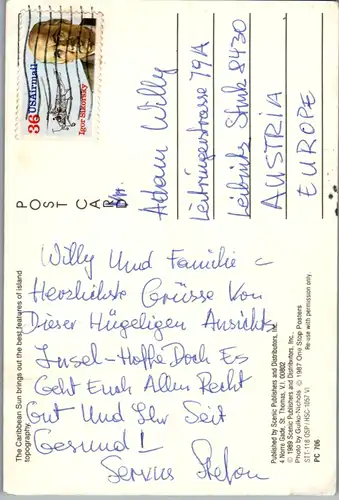 36 USAirmail
Igor Sikorsky
POST CARD
Adam Willy
79A
8430
AUSTRIA
EUROPE
The Caribbean Sun brings out the best features of island
topography.
Willy Und Familie –
Herzlichste Grüsse Von
Dieser Hügeligen Ansichts
Insel – Hoffe Doch Es
Geht Euch Allen Recht
Gut Und Ihr Seit
Gesund!
Servus Stefan
Published by Scenic Publishers and Distributors, Inc.
4 Norre Gade, St. Thomas, V.I. 00802
© 1989 Scenic Publishers and Distributors, Inc.,
Photo by Guiko-Nichols © 1987 One Stop Posters
Re-use with permission only.
PC 706